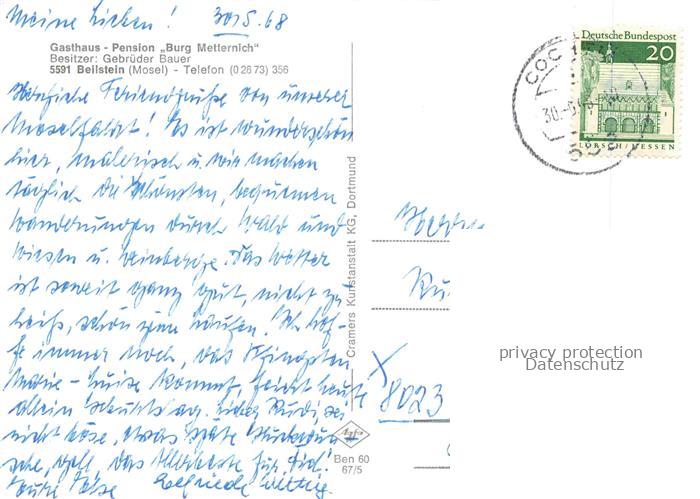 Meine Lieben! 30.5.68
Gasthaus - Pension „Burg Metternich"
Besitzer: Gebrüder Bauer
5591 Beilstein (Mosel) - Telefon (0 26 73) 356
Herzliche Feriengrüße von unserer
Moselfahrt! Es ist wunderschön
hier, malerisch u. wir machen
täglich die schönsten, bequemen
Wanderungen durch Wald und
Wiesen u. Weinberge. Das Wetter
ist soweit ganz gut, nicht zu
heiß, schön zum Laufen. Ich hof-
fe immer noch, das Pfingsten
Marie-Luise kommt,
allein
nicht böse, etwas späte
das Allerbeste für Dich!
Cramers Kunstanstalt KG, Dortmund
Ben 60
67/5
Deutsche Bundespost
20
LORSCH/HESSEN
COC
30.
8023
privacy protection
Datenschutz